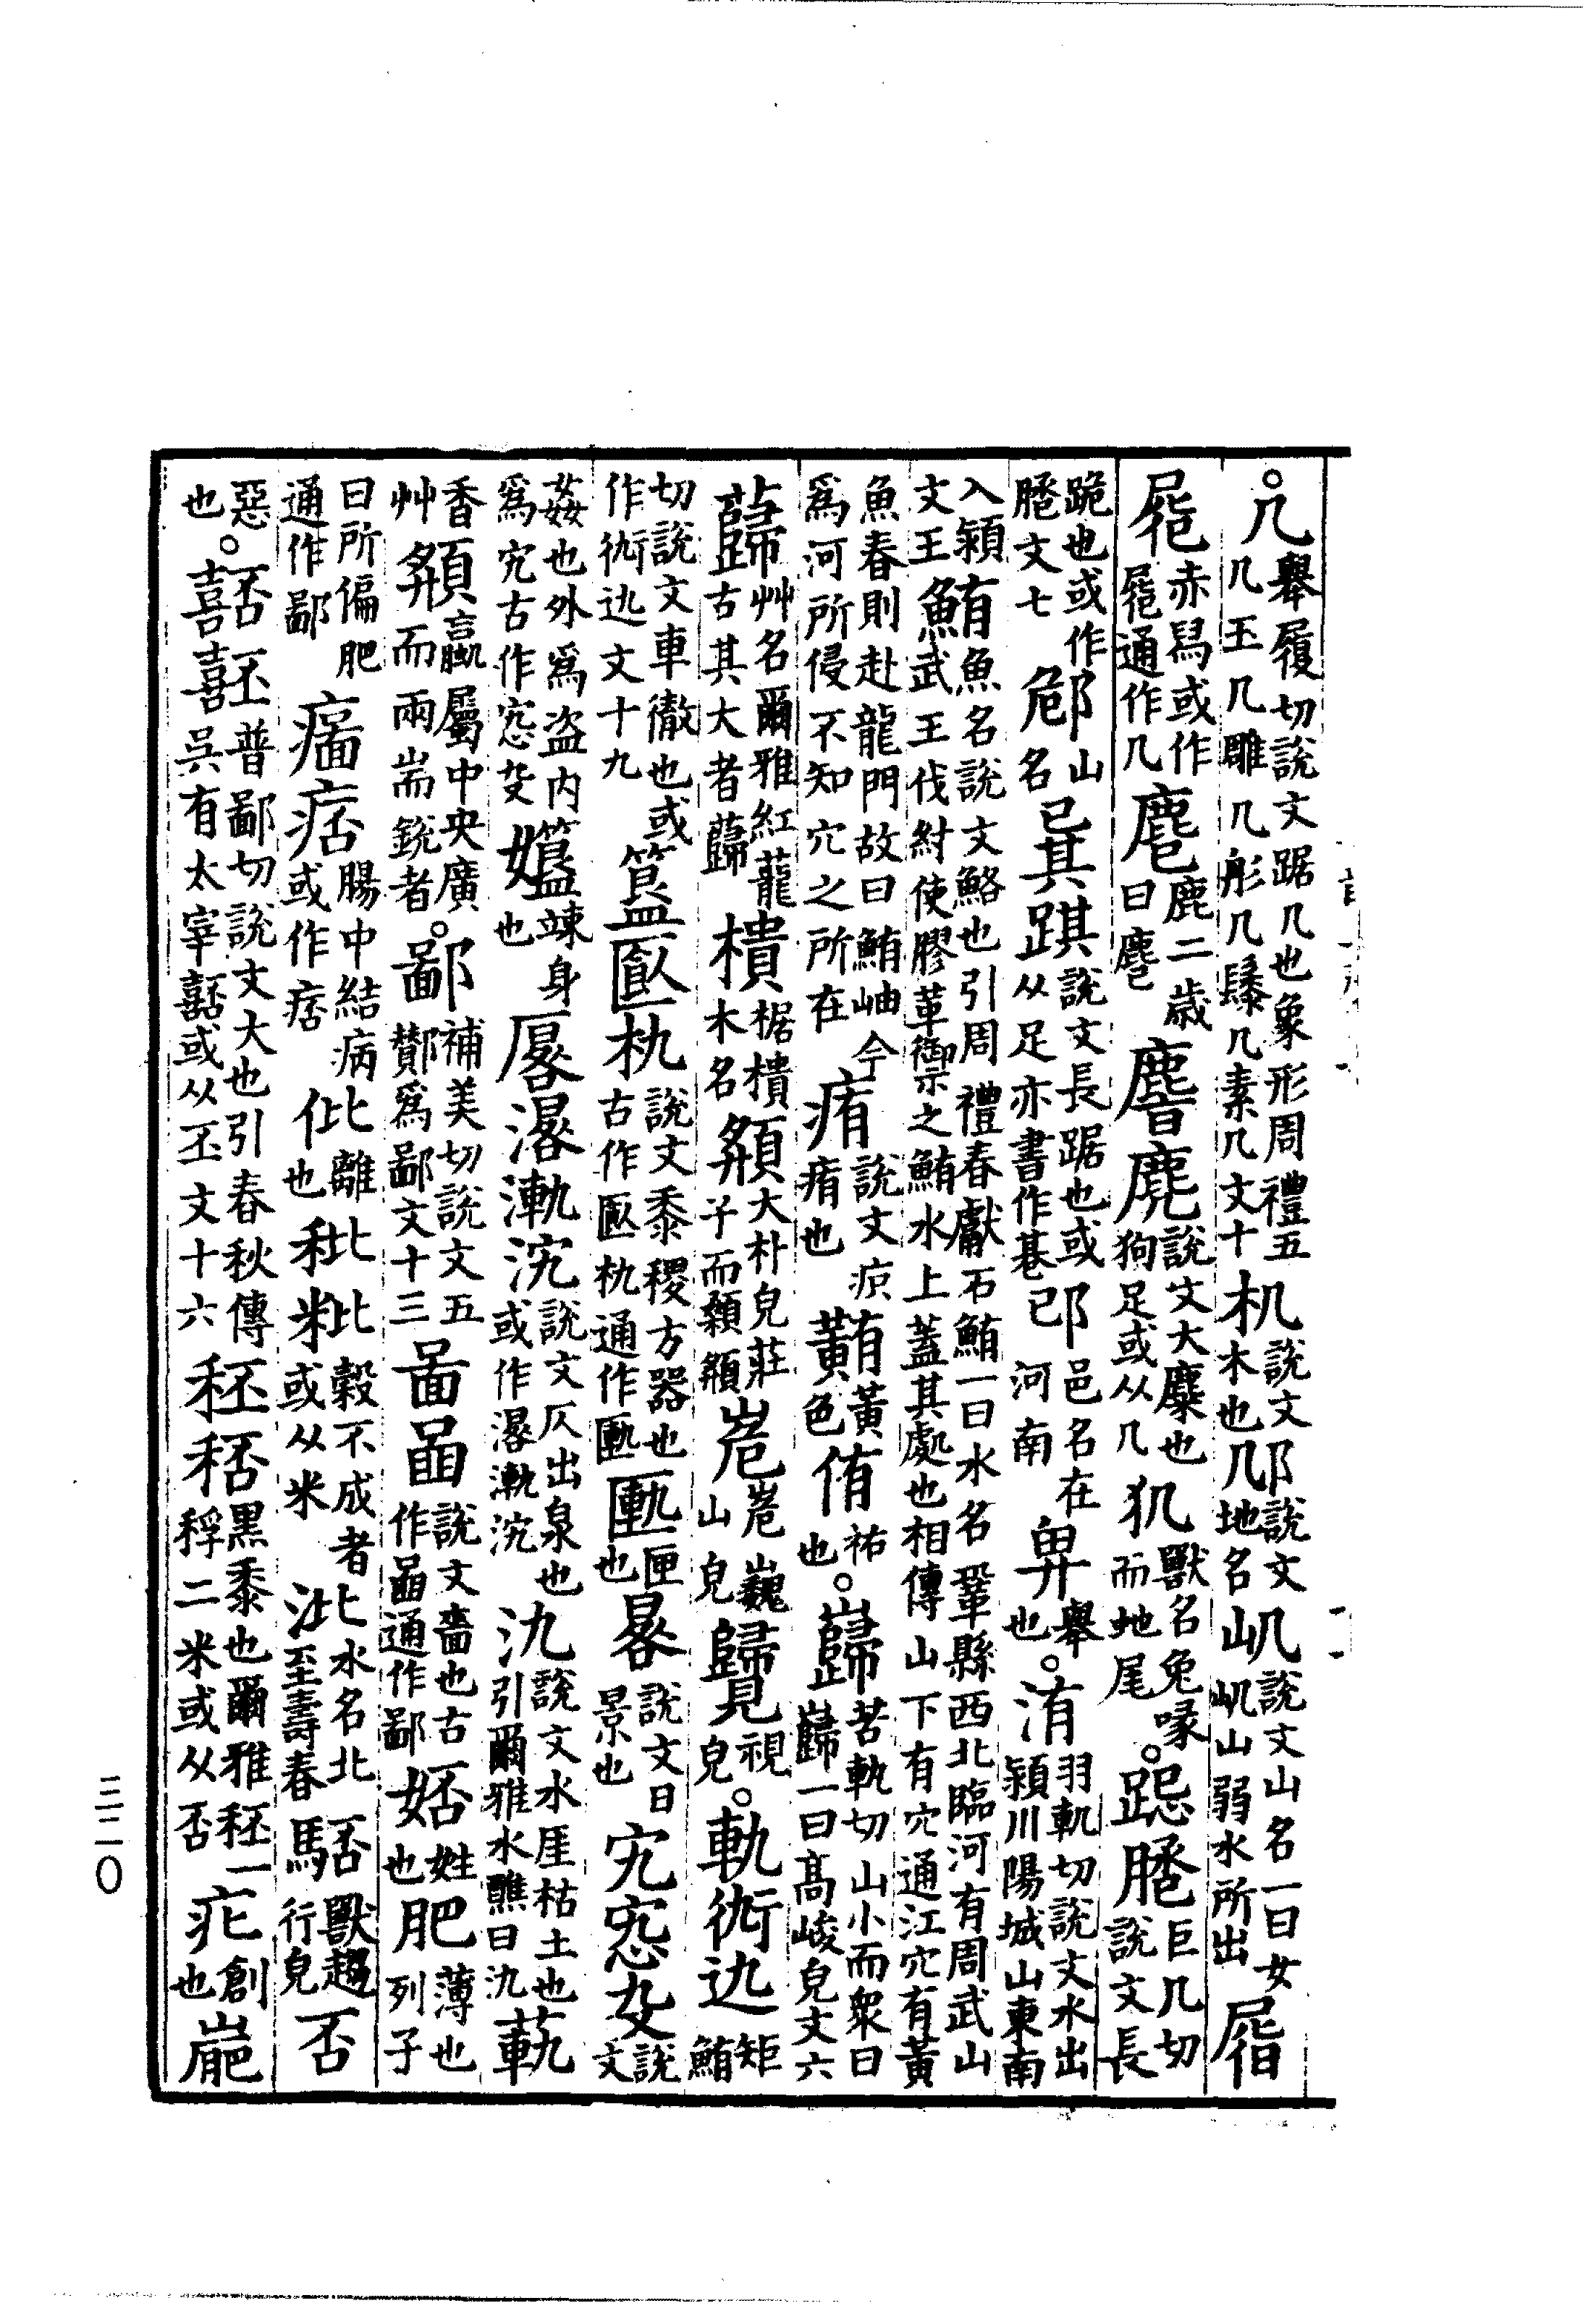 ○几舉履切說文踞几也象形周禮五几玉几雕几彤几髹几素几文十机說文木也𨙸說文地名屼說文山名一曰女屼山弱水所出
赤舄或作通作几鹿二歲曰麔麂說文大麋也狗足或从几犰獸名兔喙而虵尾○跽巨几切說文長
跪也或作文七山名㠱踑說文長踞也或从足亦書作邔邑名在河南畁舉也○洧羽軌切說文水出潁川陽城山東南
入潁文王鮪魚名說文鮥也引周禮春獻石鮪一曰水名鞏縣西北臨河有周武山武王伐紂使膠革禦之鮪水上蓋其處也相傳山下有穴通江穴有黃
魚春則赴龍門故曰鮪岫今爲河所侵不知穴之所在痏說文疻痏也䵋黃色侑祐也○巋苦軌切山小而衆曰巋一曰高峻皃文六
蘬艸名爾雅紅蘢古其大者蘬樻椐樻木名頯大朴皃莊子而顙頯峞峞巍山皃視皃○軌𨒃矩鮪
切說文車徹也或作𨒃文十九簋匭朹說文黍稷方器也古作匭朹通作匭匣也晷說文日景也宄㝌說文
姦也外爲盜內爲宄古作㝌竦身也厬說文仄出泉也或作氿說文水厓枯土也引爾雅水醮曰氿
香艸頯蠃屬中央廣而兩耑銳者○鄙補美切說文五酇爲鄙文十三啚說文嗇也古作通作鄙娝姓也肥薄也列子
曰所偏肥通作鄙痞腸中結病或作痞仳離也秕粃穀不成者或从米沘水名北至壽春獸趨行皃否
惡也○嚭普鄙切說文大也引春秋傳吳有太宰嚭或从丕文十六秠黑黍也爾雅秠一稃二米或从否疕創也
三二〇